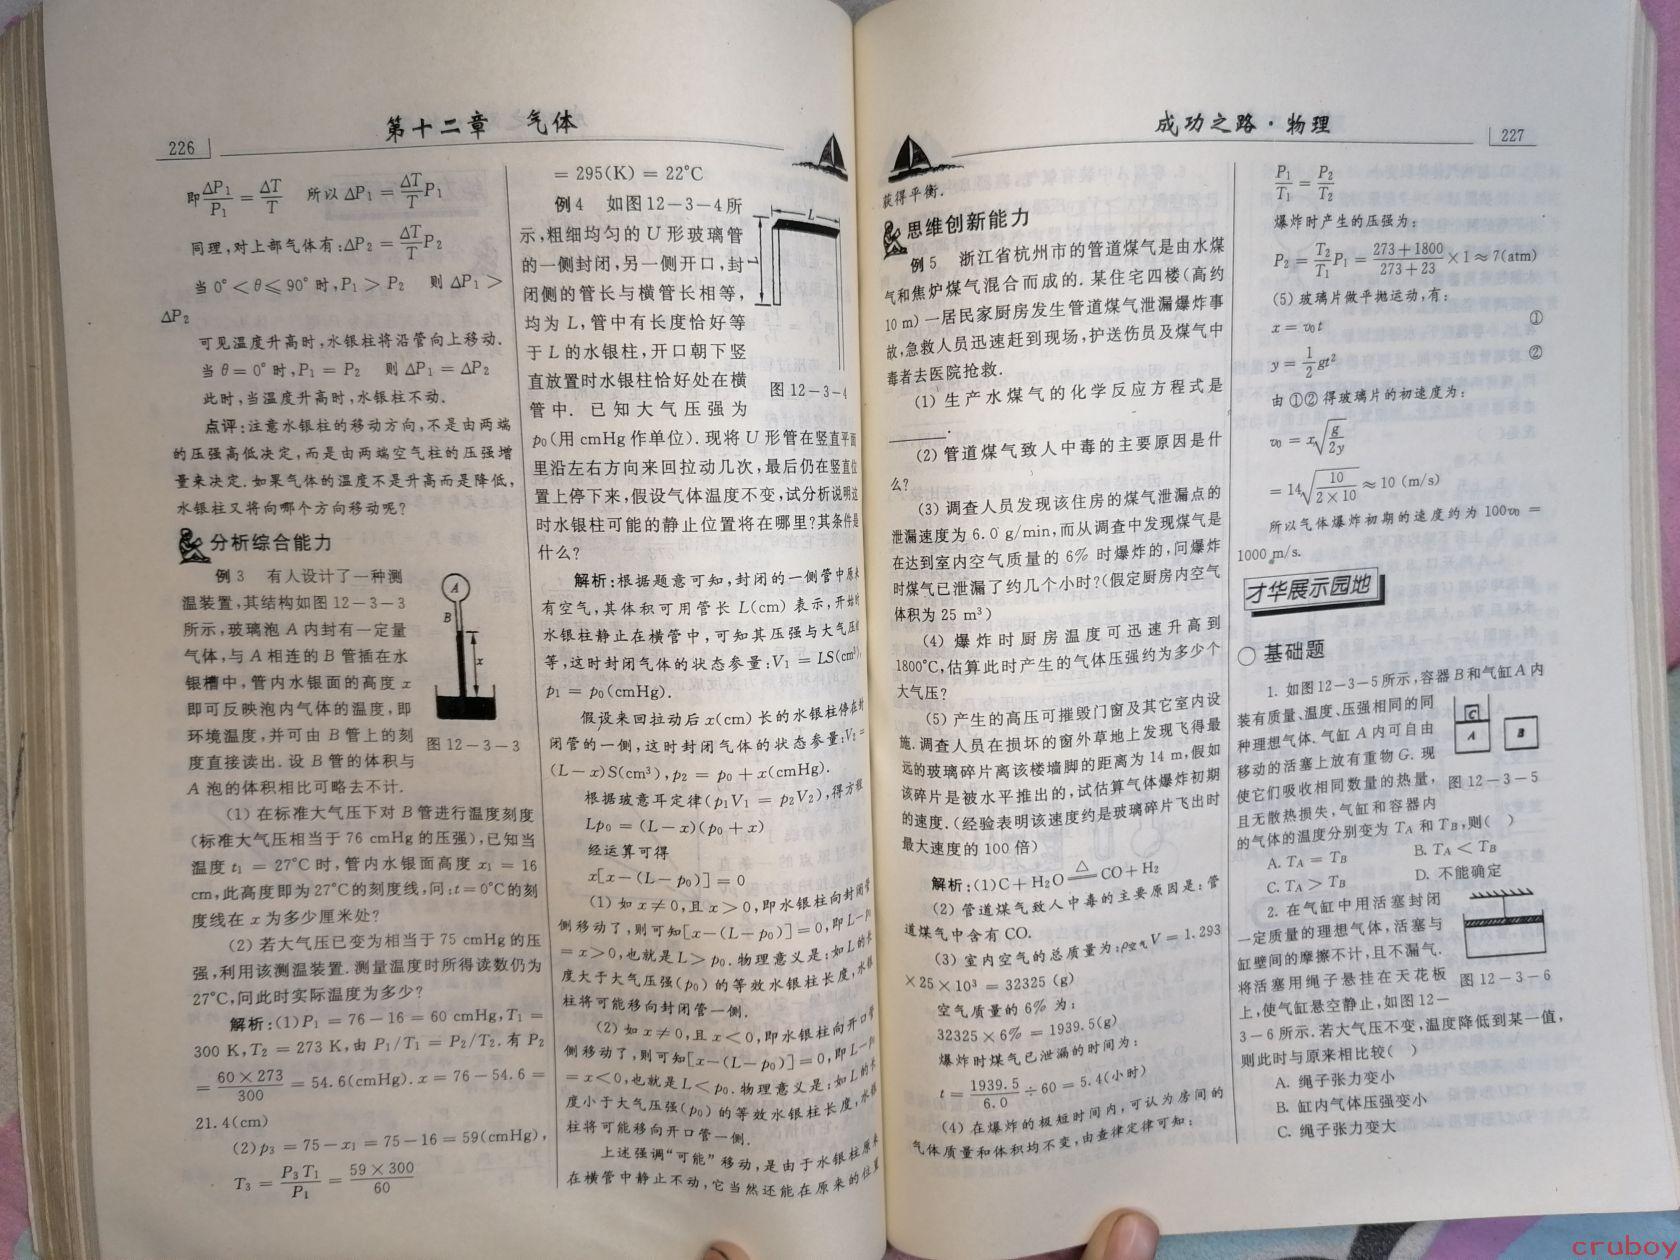 226
第十二章 气体
即ΔP₁/P₁ = ΔT/T 所以 ΔP₁ = ΔT/T P₁
同理,对上部气体有:ΔP₂ = ΔT/T P₂
当 0° < θ ⩽ 90° 时,P₁ > P₂ 则 ΔP₁ >
ΔP₂
可见温度升高时,水银柱将沿管向上移动.
当 θ = 0° 时,P₁ = P₂ 则 ΔP₁ = ΔP₂
此时,当温度升高时,水银柱不动.
点评:注意水银柱的移动方向,不是由两端
的压强高低决定,而是由两端空气柱的压强增
量来决定.如果气体的温度不是升高而是降低,
水银柱又将向哪个方向移动呢?
分析综合能力
例3 有人设计了一种测
温装置,其结构如图12-3-3
所示,玻璃泡 A 内封有一定量
气体,与 A 相连的 B 管插在水
银槽中,管内水银面的高度 x
即可反映泡内气体的温度,即
环境温度,并可由 B 管上的刻
度直接读出.设 B 管的体积与
A 泡的体积相比可略去不计.
A
B
x
图 12-3-3
(1) 在标准大气压下对 B 管进行温度刻度
(标准大气压相当于 76 cmHg 的压强),已知当
温度 t₁ = 27℃ 时,管内水银面高度 x₁ = 16
cm,此高度即为27℃的刻度线,问:t = 0℃的刻
度线在 x 为多少厘米处?
(2) 若大气压已变为相当于 75 cmHg 的压
强,利用该测温装置.测量温度时所得读数仍为
27℃,问此时实际温度为多少?
解析:(1)P₁ = 76-16 = 60 cmHg,T₁ =
300 K,T₂ = 273 K,由 P₁/T₁ = P₂/T₂.有 P₂
= 60×273/300 = 54.6(cmHg).x = 76-54.6 =
21.4(cm)
(2) p₃ = 75-x₁ = 75-16 = 59(cmHg),
T₃ = P₃T₁/P₁ = 59×300/60
= 295(K) = 22℃
例4 如图12-3-4所
示,粗细均匀的 U 形玻璃管
的一侧封闭,另一侧开口,封
闭侧的管长与横管长相等,
均为 L,管中有长度恰好等
于 L 的水银柱,开口朝下竖
直放置时水银柱恰好处在横
管中. 已知大气压强为
L
图 12-3-4
p₀(用 cmHg 作单位).现将 U 形管在竖直平面
里沿左右方向来回拉动几次,最后仍在竖直位
置上停下来,假设气体温度不变,试分析说明这
时水银柱可能的静止位置将在哪里?其条件是
什么?
解析:根据题意可知,封闭的一侧管中原来
有空气,其体积可用管长 L(cm) 表示,开始时
水银柱静止在横管中,可知其压强与大气压相
等,这时封闭气体的状态参量:V₁ = LS(cm³),
p₁ = p₀(cmHg).
假设来回拉动后 x(cm) 长的水银柱停在封
闭管的一侧,这时封闭气体的状态参量:V₂ =
(L-x)S(cm³),p₂ = p₀+x(cmHg).
根据玻意耳定律(p₁V₁ = p₂V₂),得方程
Lp₀ = (L-x)(p₀+x)
经运算可得
x[x-(L-p₀)] = 0
(1) 如 x≠0,且 x>0,即水银柱向封闭管
侧移动了,则可知[x-(L-p₀)] = 0,即 L-p₀
= x>0,也就是L>p₀.物理意义是:如L的长
度大于大气压强(p₀) 的等效水银柱长度,水银
柱将可能移向封闭管一侧.
(2) 如 x≠0,且 x<0,即水银柱向开口管
侧移动了,则可知[x-(L-p₀)] = 0,即 L-p₀
= x<0,也就是L<p₀.物理意义是:如L的长
度小于大气压强(p₀) 的等效水银柱长度,水银
柱将可能移向开口管一侧.
上述强调“可能”移动,是由于水银柱原来
在横管中静止不动,它当然还能在原来的位置
成功之路·物理
227
获得平衡.
思维创新能力
例5 浙江省杭州市的管道煤气是由水煤
气和焦炉煤气混合而成的.某住宅四楼(高约
10 m) 一居民家厨房发生管道煤气泄漏爆炸事
故,急救人员迅速赶到现场,护送伤员及煤气中
毒者去医院抢救.
(1) 生产水煤气的化学反应方程式是
________.
(2) 管道煤气致人中毒的主要原因是什
么?
(3) 调查人员发现该住房的煤气泄漏点的
泄漏速度为 6.0 g/min,而从调查中发现煤气是
在达到室内空气质量的 6% 时爆炸的,问爆炸
时煤气已泄漏了约几个小时?(假定厨房内空气
体积为 25 m³)
(4) 爆炸时厨房温度可迅速升高到
1800℃,估算此时产生的气体压强约为多少个
大气压?
(5) 产生的高压可摧毁门窗及其它室内设
施.调查人员在损坏的窗外草地上发现飞得最
远的玻璃碎片离该楼墙脚的距离为 14 m,假如
该碎片是被水平推出的,试估算气体爆炸初期
的速度.(经验表明该速度约是玻璃碎片飞出时
最大速度的 100 倍)
解析:(1)C+H₂O =△= CO+H₂
(2) 管道煤气致人中毒的主要原因是:管
道煤气中含有 CO.
(3) 室内空气的总质量为:ρ空气V = 1.293
×25×10³ = 32325 (g)
空气质量的 6% 为:
32325×6% = 1939.5(g)
爆炸时煤气已泄漏的时间为:
t = 1939.5/6.0 ÷60 = 5.4(小时)
(4) 在爆炸的极短时间内,可认为房间的
气体质量和体积均不变,由查律定律可知:
P₁/T₁ = P₂/T₂
爆炸时产生的压强为:
P₂ = T₂/T₁ P₁ = 273+1800/273+23 ×1≈7(atm)
(5) 玻璃片做平抛运动,有:
x = v₀t ①
y = 1/2 gt² ②
由①②得玻璃片的初速度为:
v₀ = x√(g/2y)
= 14√(10/2×10) ≈10 (m/s)
所以气体爆炸初期的速度约为 100v₀ =
1000 m/s.
才华展示园地
○ 基础题
1. 如图12-3-5所示,容器B和气缸A内
装有质量、温度、压强相同的同
种理想气体.气缸 A 内可自由
移动的活塞上放有重物 G. 现
使它们吸收相同数量的热量,
且无散热损失,气缸和容器内
的气体的温度分别变为 T_A 和 T_B,则( )
G
A
B
图 12-3-5
A. T_A = T_B B. T_A < T_B
C. T_A > T_B D. 不能确定
2. 在气缸中用活塞封闭
一定质量的理想气体,活塞与
缸壁间的摩擦不计,且不漏气.
将活塞用绳子悬挂在天花板
上,使气缸悬空静止,如图 12-
3-6所示.若大气压不变,温度降低到某一值,
则此时与原来相比较( )
图 12-3-6
A. 绳子张力变小
B. 缸内气体压强变小
C. 绳子张力变大
cruboy